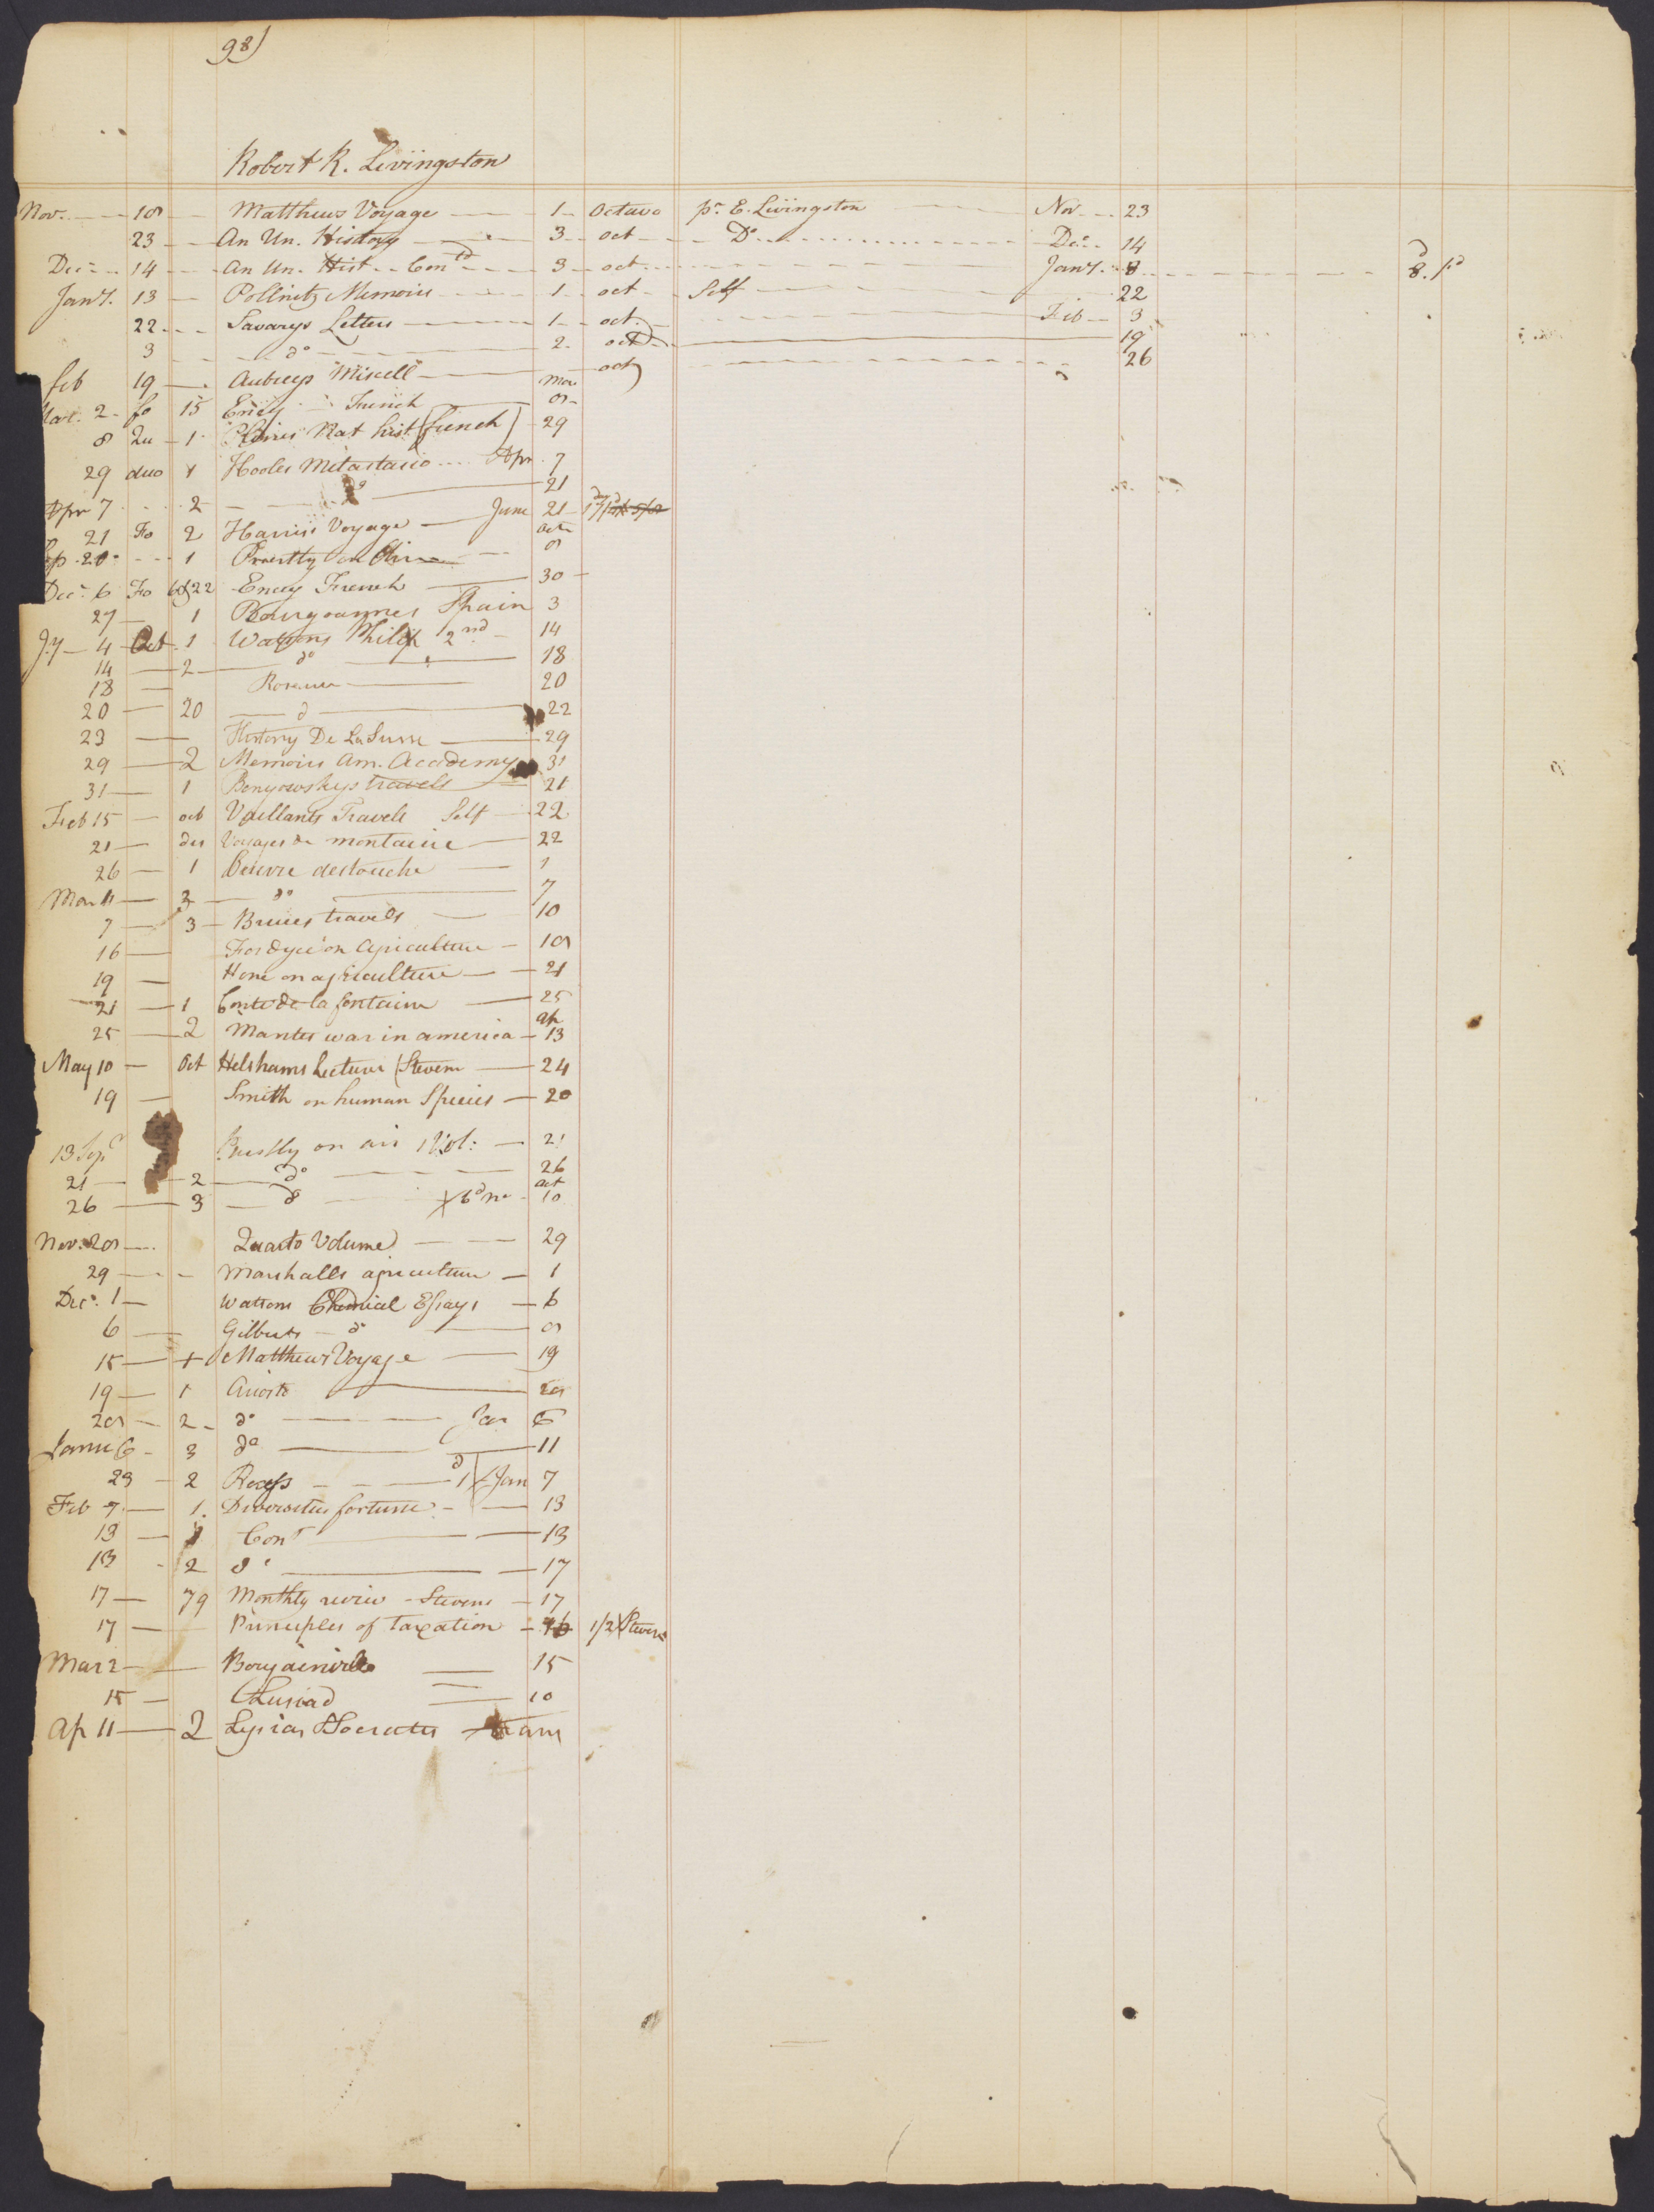 98)
Robert R. Livingston
Nov. 18 Matthews Voyage 1 Octavo pr. E. Livingston Nov 23
23 An Un. History 3 oct Do Decr. 14
Decr. 14 An Un. Hist. Contd 3 oct Jany. 8 8d. pd
Jany. 13 Pollnitz Memoirs 1 oct Self 22
22 Savarys Letters 1 oct. Feb 3
3 do 2 oct 19
feb 19 Aubreys Miscell oct 26
Mar. 2 fo 15 Ency French Mar 8
8 Qu 1 Plinies Nat hist (french) 29
29 duo 1 Hooles Metastasio Apr 7
Apr 7 2 do 21
21 Fo 2 Harris Voyage June 21
Sep. 20 1 Priestly on octr 8
Decr. 6 Fo 6&22 Ency French 30
27 1 Bourgoannes Spain 3
Jy 4 Oct 1 Watsons Philip 2nd 14
14 2 do 18
18 20
20 20 d 22
23 History De La Suisse 29
29 2 Memoirs Am. Academy 31
31 1 Benyowskys travels 21
Feb 15 oct Vaillants Travels Self 22
21 Voyages de montaine 22
26 1 Oeuvre destouche 1
Mar 3 do 7
7 3 Bruces travels 10
16 Fordyce on Agriculture 18
19 Home on agriculture 21
21 1 Conte de la fontaine 25
25 2 Mantes war in america ap 13
May 10 Oct Helshams Lectures (Stevens 24
19 Smith on human Species 20
13 Sepr Priestly on air 1 Vol. 21
21 2 do 26
26 3 do oct 10
Nov. 28 Quarto Volume 29
29 Marshalls agriculture 1
Decr. 1 Watsons Chemical Essays 6
6 Gilberts do 8
15 Matthews Voyage 19
19 1 Ariosto 28
28 2 do Jan 6
Janu 6 3 do 11
23 2 Recess 1d Jan 7
Feb 7 1. fortune 13
13 Cont 13
13 2 do 17
17 79 Monthly review Stevens 17
17 Principles of Taxation 1/2 Stevens
Mar 2 Bougainville 15
15 Lusiad 10
Ap 11 2 Lysias Isocrates